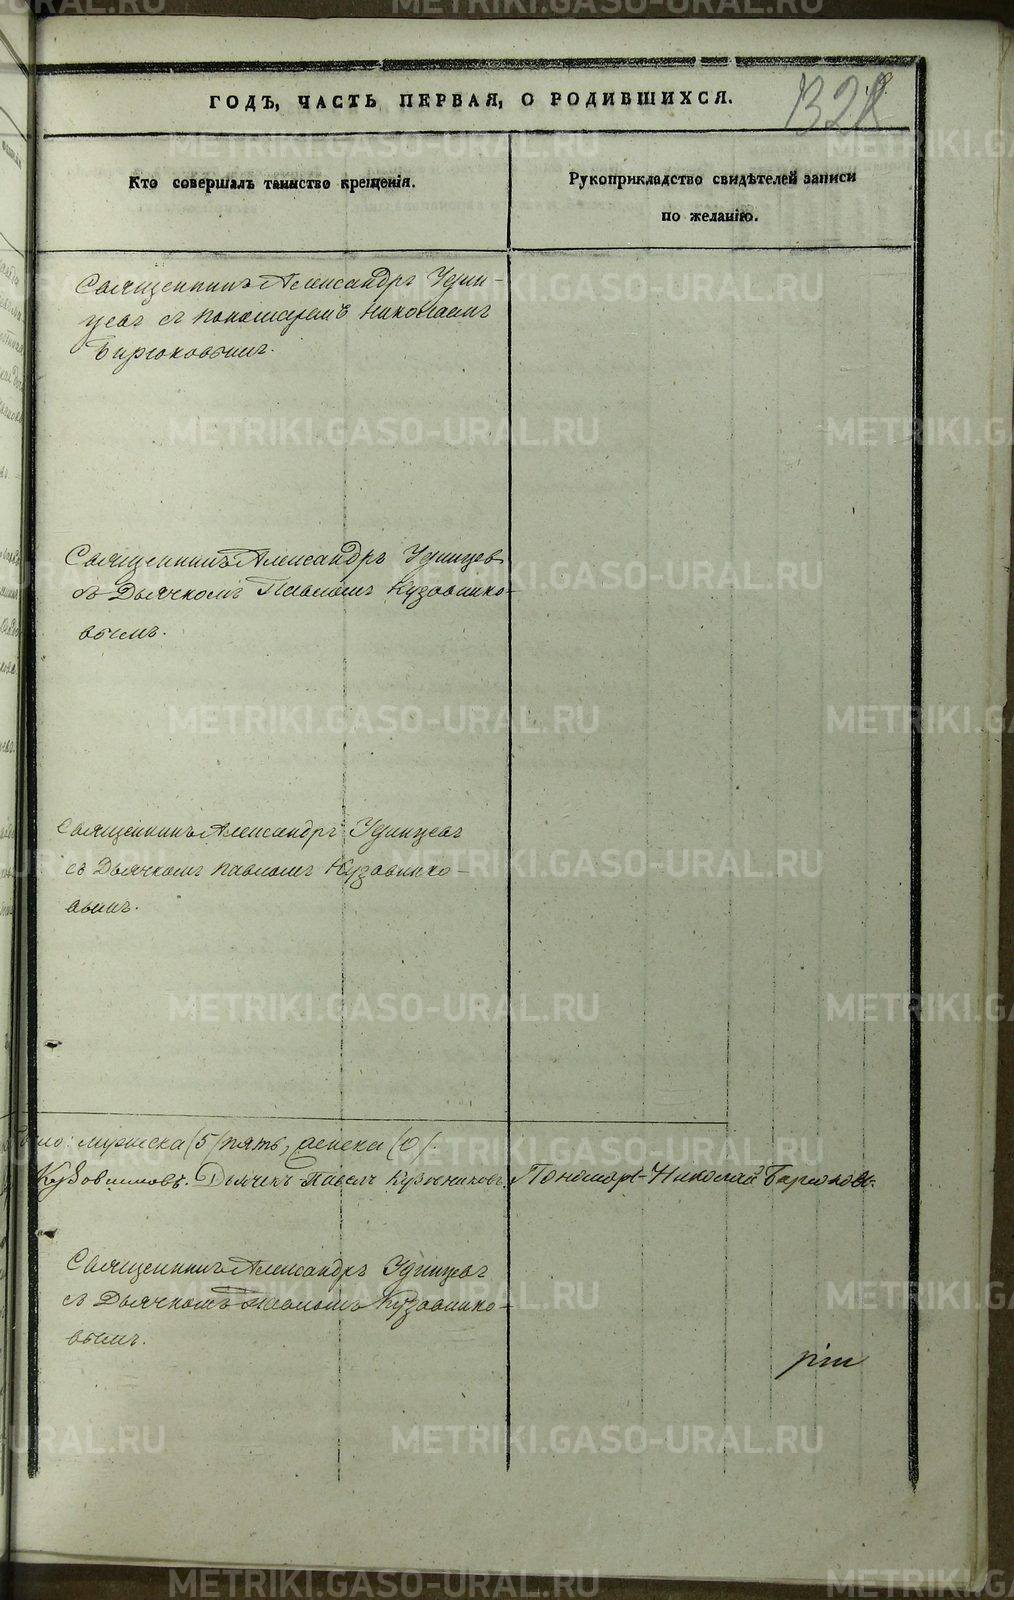 ГОДЪ, ЧАСТЬ ПЕРВАЯ, О РОДИВШИХСЯ.
Кто совершалъ таинство крещенія.
Рукоприкладство свидѣтелей записи
по желанію.
Священникъ Александръ Удин-
цевъ съ пономаремъ Николаемъ
Бирюковымъ.
Священникъ Александръ Удинцевъ
съ Дьячкомъ Павломъ Кузовнико-
вымъ.
Священникъ Александръ Удинцевъ
съ Дьячкомъ Павломъ Кузовнико-
вымъ.
мужеска /5/ пять, женска /0/
Кузовниковъ. Дьячекъ Павелъ Кузовниковъ, Пономарь Николай Бирюковъ.
Священникъ Александръ Удинцевъ
съ Дьячкомъ Павломъ Кузовнико-
вымъ.
METRIKI.GASO-URAL.RU